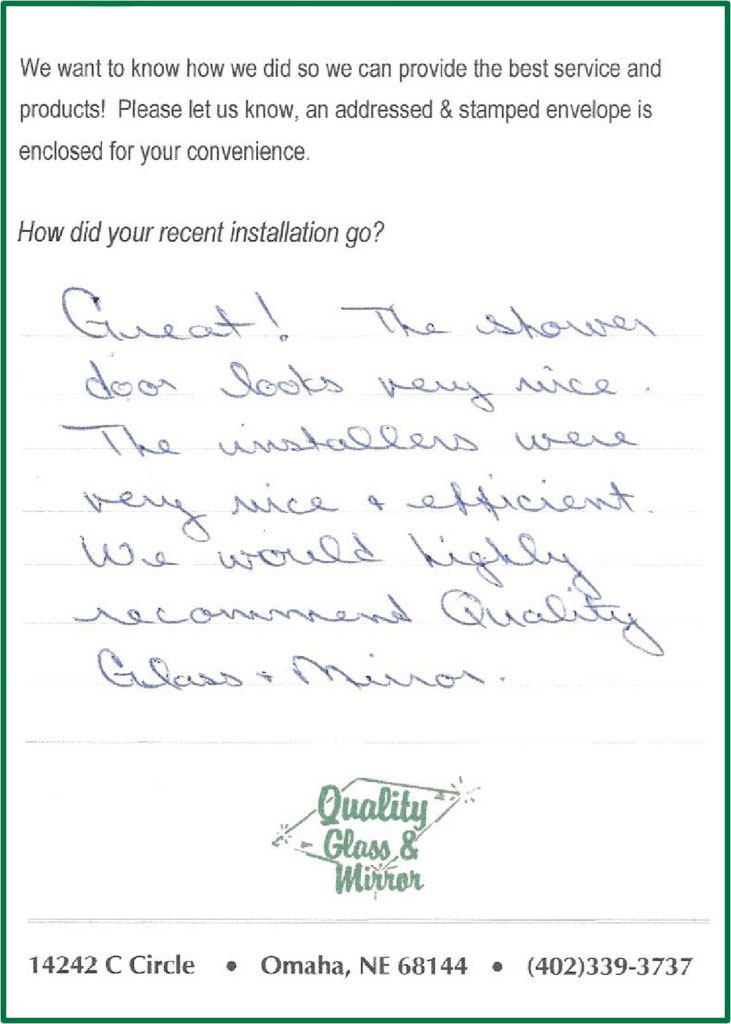 We want to know how we did so we can provide the best service and
products! Please let us know, an addressed & stamped envelope is
enclosed for your convenience.
How did your recent installation go?
Great! The shower
door looks very nice.
The installers were
very nice + efficient.
We would highly
recommend Quality
Glass + Mirror.
Quality
Glass &
Mirror
14242 C Circle • Omaha, NE 68144 • (402)339-3737